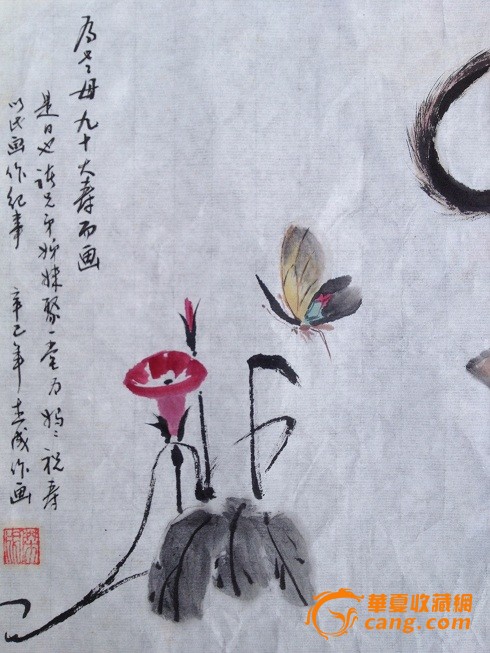 为老母九十大寿而画
是日也诸兄弟姊妹聚一堂为妈妈祝寿
以此画作纪事 辛巳年 志成作画
華夏收藏網
cang.com